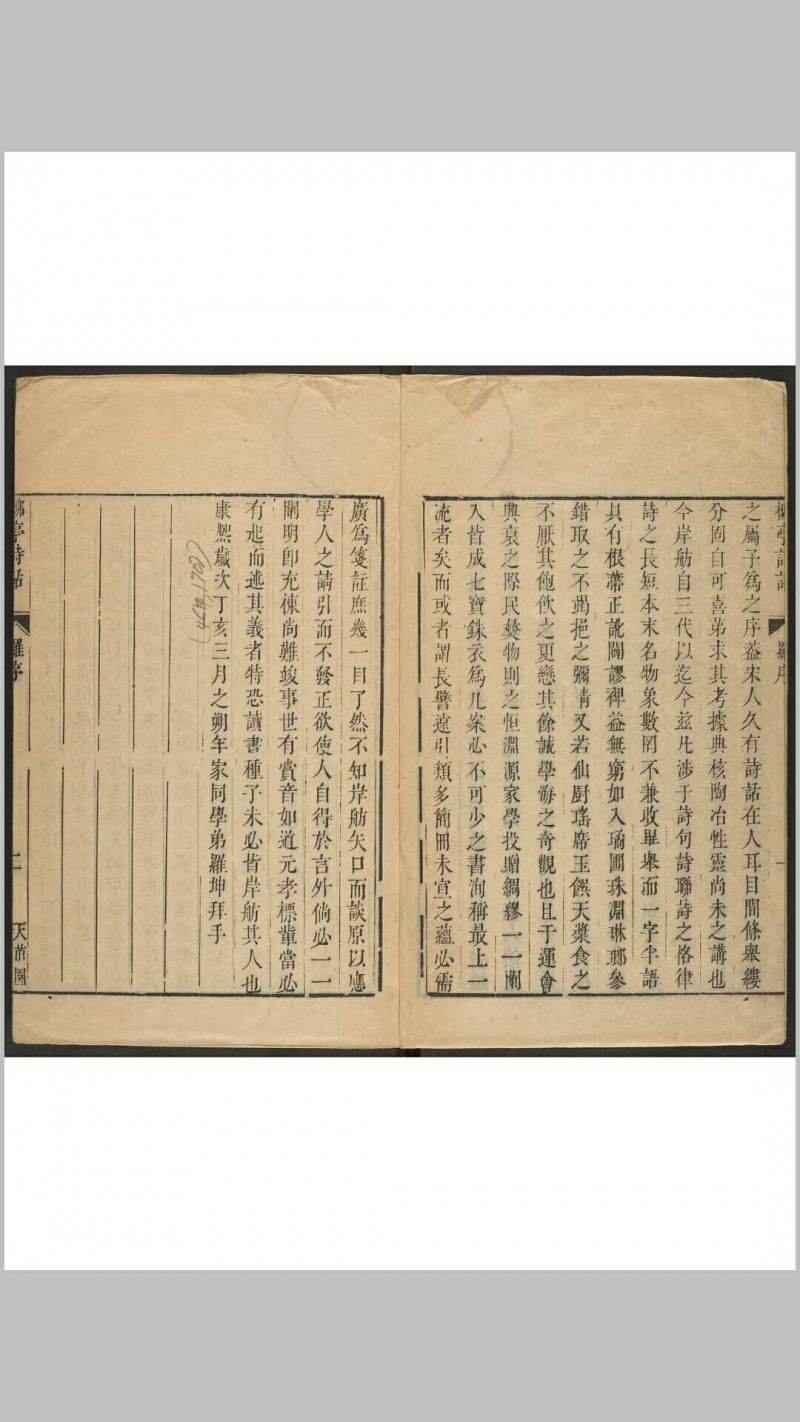 柳亭詩話
羅序
一
之屬予爲之序葢宋人久有詩話在人耳目間條舉縷
分固自可喜第求其考據典核陶冶性靈尚未之講也
今岸舫自三代以迄今茲凡涉于詩句詩聯詩之格律
詩之長短本末名物象數罔不兼收畢舉而一字半語
具有根蒂正訛闢謬裨益無窮如入璚圃珠淵琳瑯參
錯取之不竭挹之彌淸又若仙厨瑤席玉饌天漿食之
不厭其飽飲之更戀其餘誠學海之奇觀也且于運會
興衰之際民彝物則之恒淵源家學投贈綢繆一一闌
入皆成七寶銖衣爲几案必不可少之書洵稱最上一
流者矣而或者謂長譬遠引類多簡冊未宣之蘊必需
廣爲箋註庶幾一目了然不知岸舫矢口而談原以應
學人之請引而不發正欲使人自得於言外倘必一一
闡明卽充棟尚難竣事世有賞音如道元孝標輩當必
有起而述其義者特恐讀書種子未必皆岸舫其人也
康熙歲次丁亥三月之朔年家同學弟羅坤拜手
柳亭詩話
羅序
二
天茁園